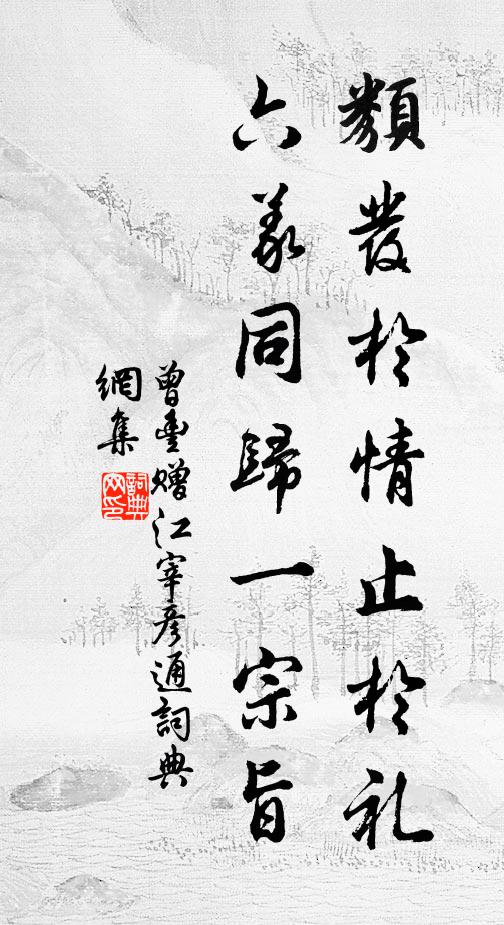 類發於情止於礼
六義同歸一宗旨
曾豐贈江宰彥通詞典
網集
詞典
网印